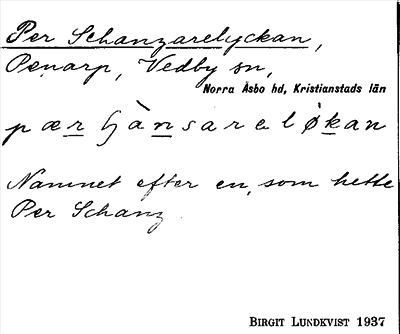 Per Schanzarelyckan,
Penarp, Vedby sn,
Norra Åsbo hd, Kristianstads län
Namnet efter en, som hette
Per Schanz
BIRGIT LUNDKVIST 1937